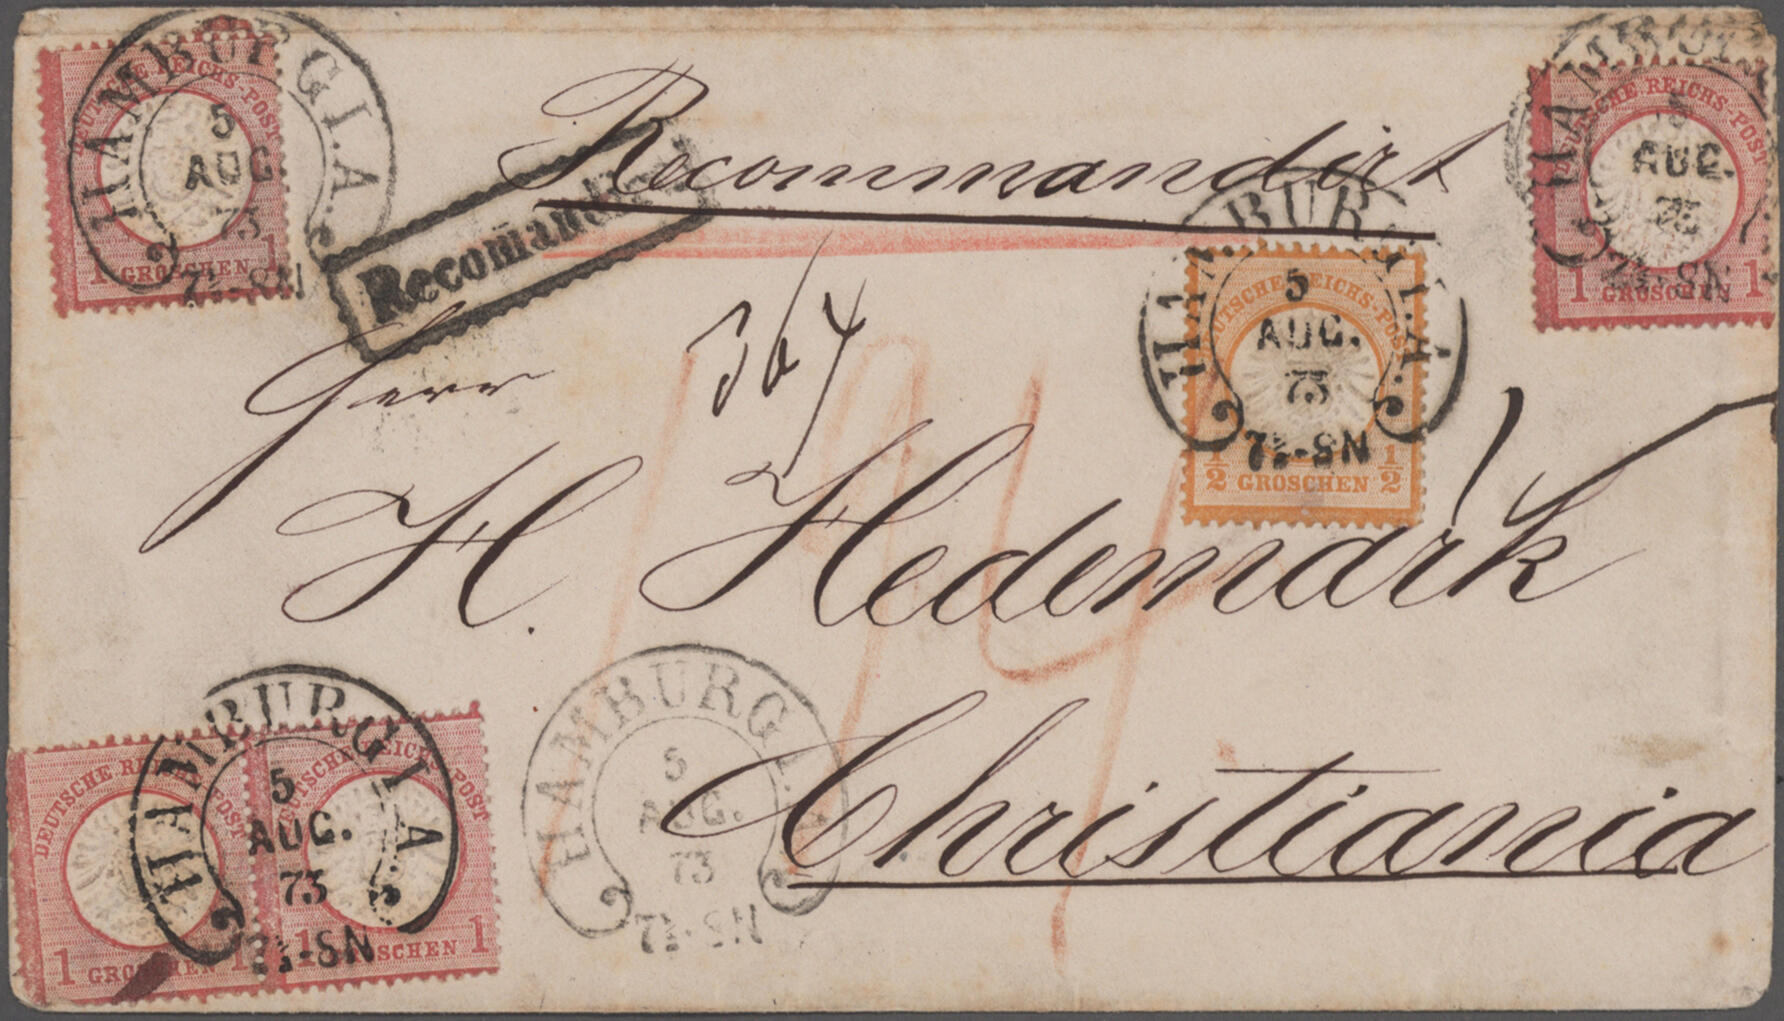 HAMBURG I.A.
5
AUG.
73
7½-8N
DEUTSCHE REICHS-POST
1 GROSCHEN 1
Recommandirt
Recomandirt
HAMBURG I.A.
5
AUG.
73
7½-8N
DEUTSCHE REICHS-POST
1 GROSCHEN 1
HAMBURG I.A.
5
AUG.
73
7½-8N
DEUTSCHE REICHS-POST
½ GROSCHEN ½
Herr
364
H. Hedemark
Christiania
HAMBURG I.A.
5
AUG.
73
7½-8N
DEUTSCHE REICHS-POST
1 GROSCHEN 1
DEUTSCHE REICHS-POST
1 GROSCHEN 1
HAMBURG I.A.
5
AUG.
73
7½-8N